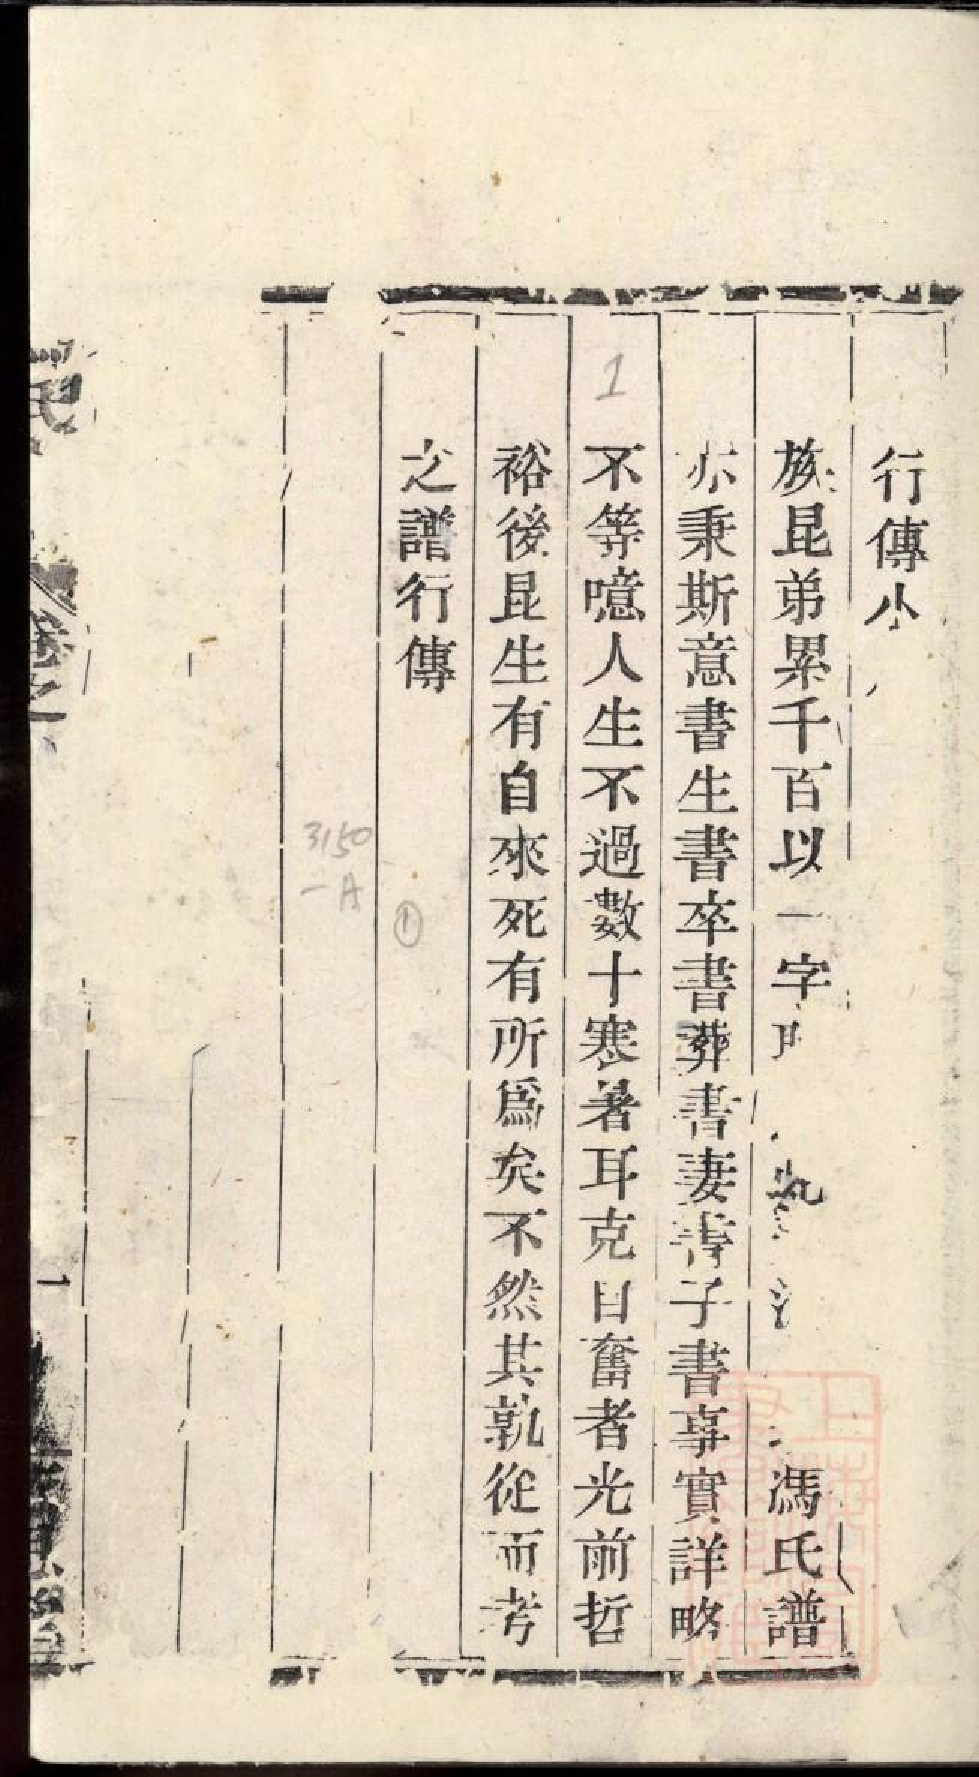 行傳小
族昆弟累千百以一字 馮氏譜
亦秉斯意書生書卒書葬書妻書子書事實詳略
不等噫人生不過數十寒暑耳克自奮者光前哲
裕後昆生有自來死有所爲矣不然其孰從而考
之譜行傳
1
3150
-A
①
氏
卷之
一